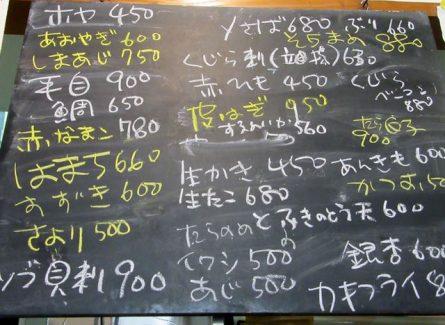 ホヤ 450
あおやぎ 600
しまあじ 750
平目 900
鯛 650
赤なまこ 780
はまち 660
あずき 600
さより 500
ツブ貝刺 900
〆さば 680
くじら刺 630
赤ひも 450
皮はぎ 950
するめいか 560
生かき 450
生たこ 680
たらのめとふきのとう天 600
イワシ 500
あじ 500
ぶり 660
そらまめ 880
くじらベーコン 880
たら白子 900
あんきも 600
かつお
銀杏 600
カキフライ